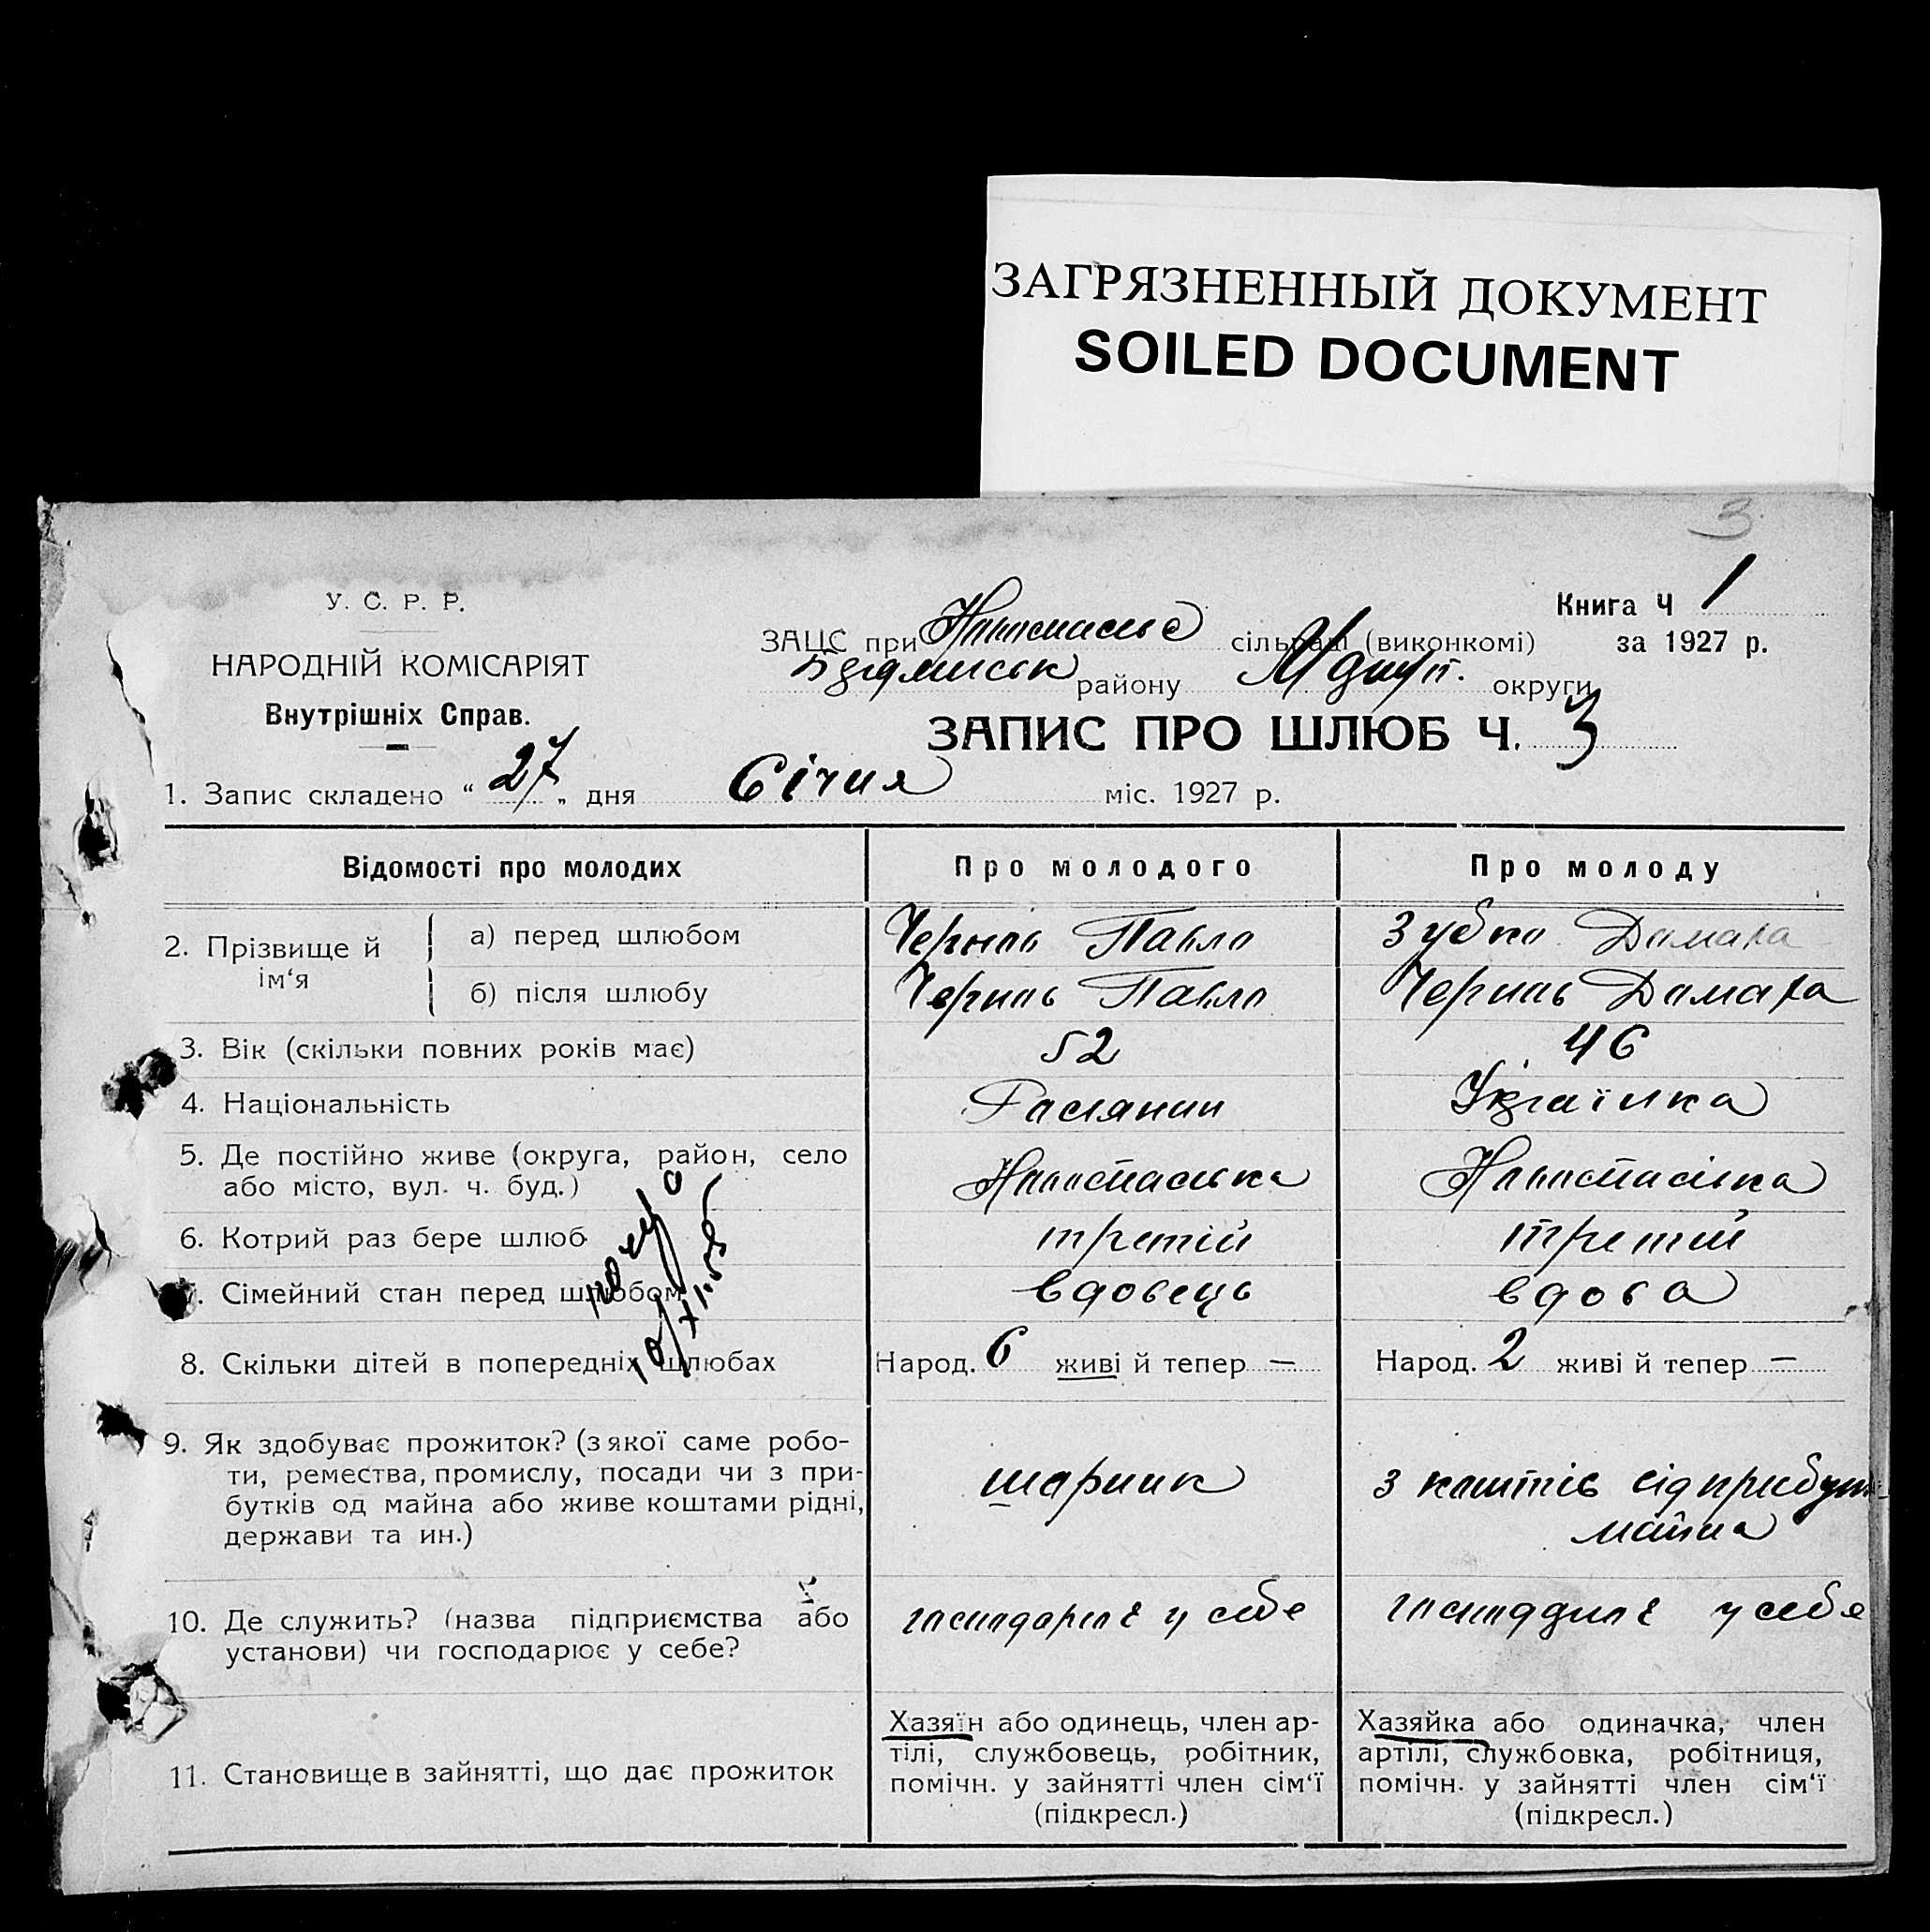 ЗАГРЯЗНЕННЫЙ ДОКУМЕНТ
SOILED DOCUMENT
3
У. С. Р. Р.
НАРОДНІЙ КОМІСАРІЯТ
Внутрішніх Справ.
Книга Ч 1
за 1927 р.
ЗАЦС при сільраді (виконкомі)
району округи
ЗАПИС ПРО ШЛЮБ Ч. 3
1. Запис складено “ 27 „ дня Січня міс. 1927 р.
Відомості про молодих Про молодого Про молоду
2. Прізвище й ім‘я
а) перед шлюбом Павло Зубко Домаха
б) після шлюбу Павло Домаха
3. Вік (скільки повних років має) 52 46
4. Національність Росіянин Українка
5. Де постійно живе (округа, район, село
або місто, вул. ч. буд.)
6. Котрий раз бере шлюб третій третій
7. Сімейний стан перед шлюбом вдовець вдова
8. Скільки дітей в попередніх шлюбах Народ. 6 живі й тепер — Народ. 2 живі й тепер —
9. Як здобуває прожиток? (з якої саме робо-
ти, ремества, промислу, посади чи з при-
бутків од майна або живе коштами рідні,
держави та ин.)
з коштів від прибут
майна
10. Де служить? (назва підприємства або
установи) чи господарює у себе?
господарює у себе у себе
11. Становище в зайнятті, що дає прожиток
Хазяїн або одинець, член ар-
тілі, службовець, робітник,
помічн. у зайнятті член сім‘ї
(підкресл.)
Хазяйка або одиначка, член
артілі, службовка, робітниця,
помічн. у зайнятті член сім‘ї
(підкресл.)